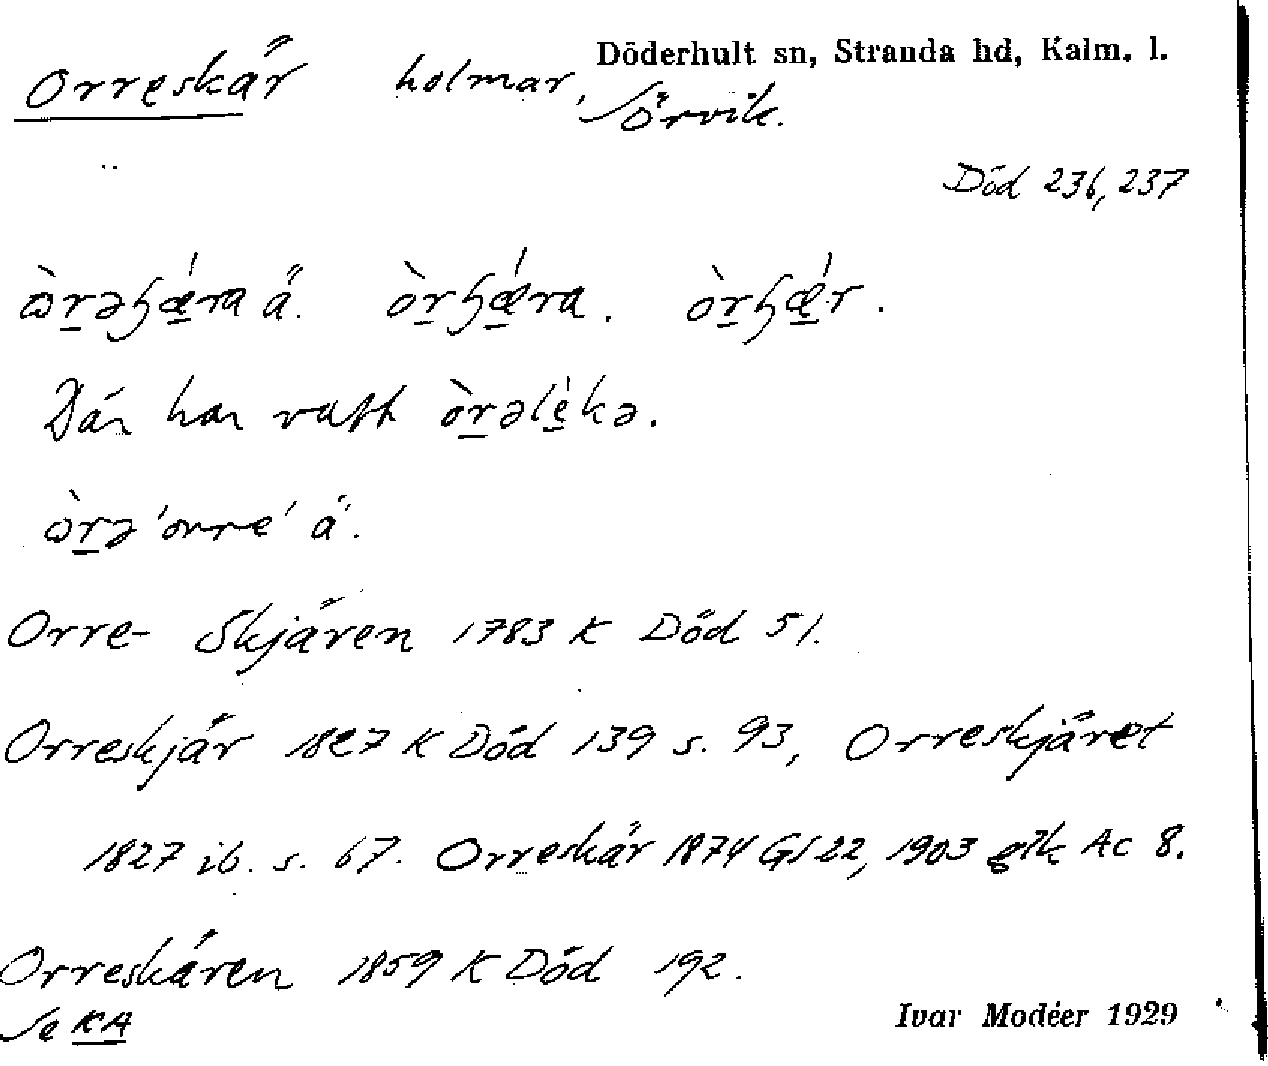 Orreskär holmar, Döderhult sn, Stranda hd, Kalm. l.
Sörvik.
Död 236, 237
òrəɧǽra ä. òrɧǽra. òrɧǽr.
Där har vatt òrəlèkə.
òrə 'orre' ä.
Orre- Skjären 1783 K Död 51.
Orreskjär 1827 K Död 139 s. 93, Orreskjäret
1827 ib. s. 67. Orreskär 1874 GS 22, 1903 glk Ac 8.
Orreskären 1859 K Död 192.
Se KA
Ivar Modéer 1929